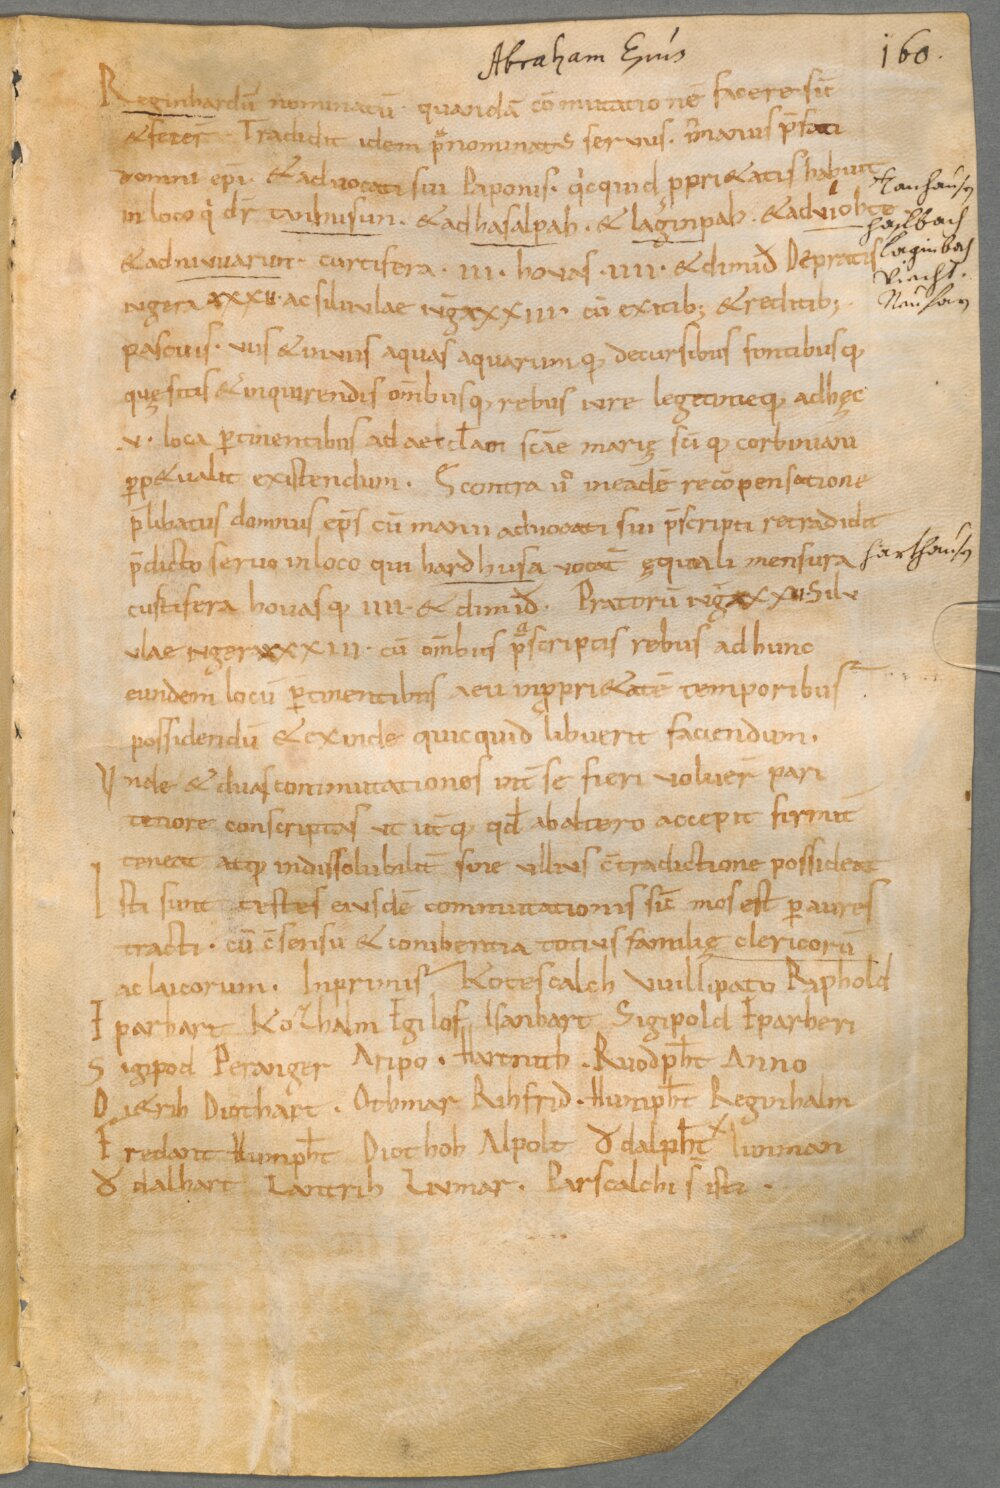 Abraham Epūs 160.
Reginhardū nominatū. quandā cōmutationē facere sic̄
& fecer̄. Tradidit idem p̄nominatꝰ servus. In manus p̄fati
domni ep̄i. & advocati sui Paponis. q̇cquid ꝓpri&atis habuit
in loco q̇ dr̄ tanhusun. & ad hasalpah. & laginpah. & ad viohte
& ad nivuarun. curtifera. III. hovas. IIII. & dimid̄ De pratis
iugera XXXII. ac silvulae iuḡ XXIII. cū exitib; & reditib;
pascuis. viis & inviis aquas aquarumq; decursibus fontibusq;
quęsitis & inquirendis om̄ibusq; rebus iure legitimeq; ad hęc
.V. loca ꝑtinentibus ad aeccl̄am sc̄ae marię sc̄iq; corbiniani
ꝑp&ualit̄ existendum. Econtra v͛o in eadē recōpensatione
p̄libatus domnus ep̄s cū manu advocati sui p̄scripti retradidit
p̄dicto servo in loco qui hardhusa vocat̄ ęquali mensura
curtifera hovasq; IIII. & dimid̄. Pratorū iuḡ XXXII. Silv
ulae iugera XXIII. cū om̄ibus p̄scriptis rebus ad hunc
eundem locū ꝑtinentibus aevi in ꝓpri&atē temporibus
possidendū & exinde quicquid libuerit faciendum.
Unde & duas conmutationes int̄ se fieri voluer̄ pari
tenore conscriptas ut ut̄q; qd̄ ab altero accepit firmit̄
teneat atq; indissolubilit̄ sine ullius c̄tradictione possideat
Isti sunt testes eiusdē commutationis sic̄ mos est ꝑ aures
tracti. cū c̄sensu & conibentia totius familię clericorū
ac laicorum. Inprimis Kotescalch Vuillipato Raphold
Eparhart Kozhalm Egilof Isanhart Sigipold Eparheri
Sigipod Peranger Aripo. Hartnuth. Ruodpħt Anno
Di&rih Diothart. Othmar Rihfrid. Humpħt Reginhalm
Fredant Humpħt Diothoh Alpolt Ŏdalpħt Iunman
Ŏdalhart Lantrih Liumar. Parscalchi s̄ isti.
Tanhausn
haslbach
laginbach
Viecht.
Neufarn
harthausn